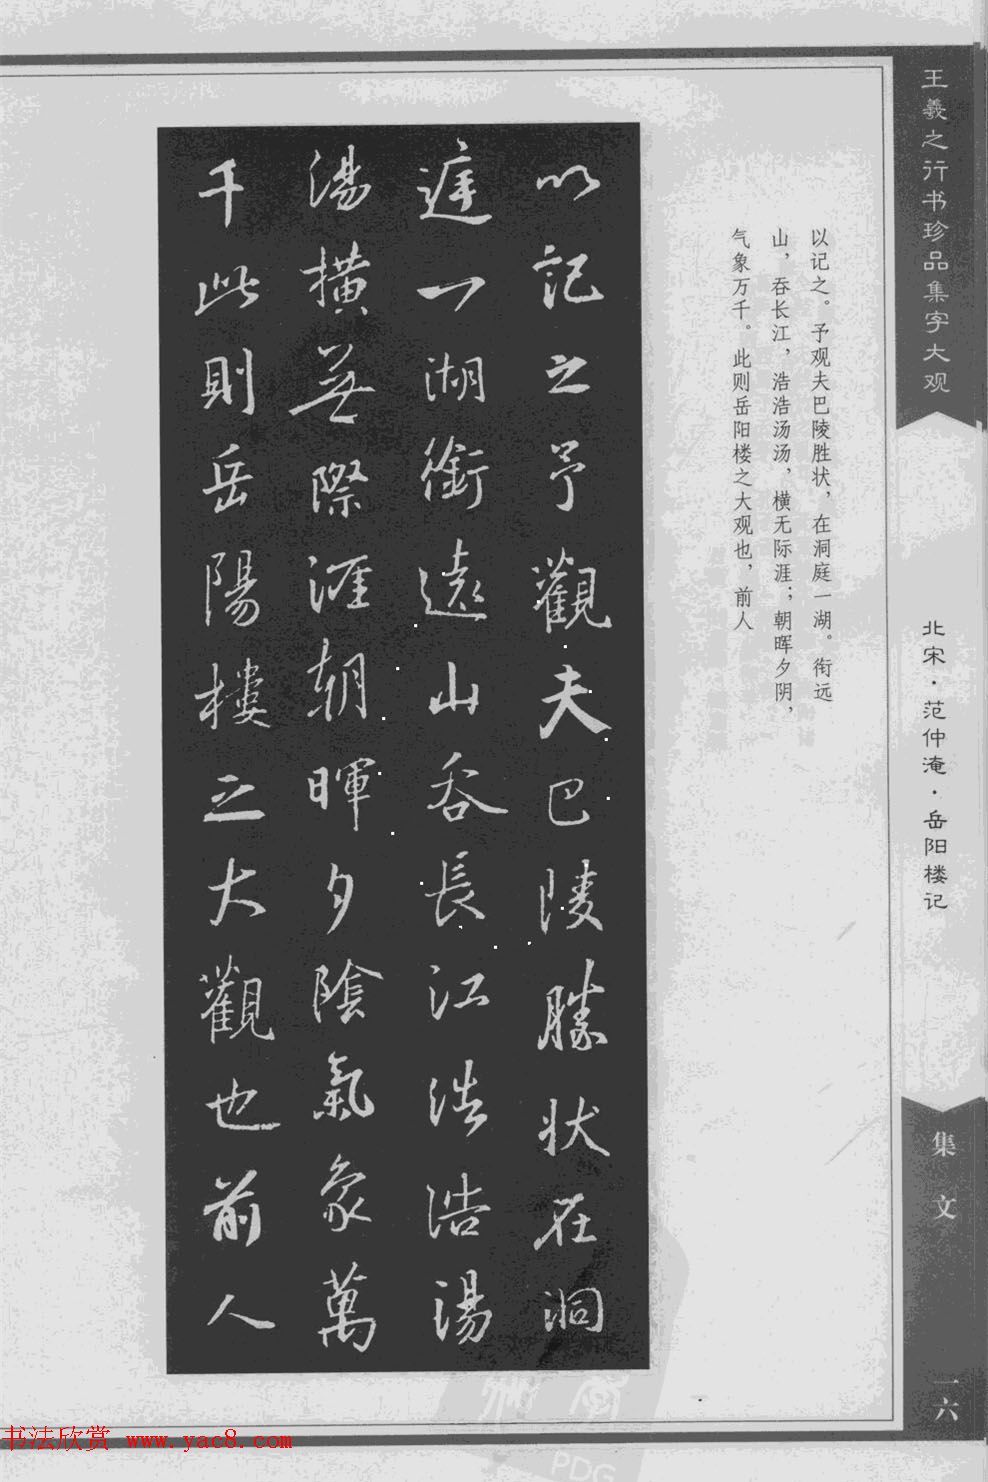 王羲之行书珍品集字大观
北宋·范仲淹·岳阳楼记
集文
一六
以记之。予观夫巴陵胜状，在洞庭一湖。衔远
山，吞长江，浩浩汤汤，横无际涯；朝晖夕阴，
气象万千。此则岳阳楼之大观也，前人
以記之予觀夫巴陵勝狀在洞
庭一湖銜遠山吞長江浩浩湯
湯橫無際涯朝暉夕陰氣象萬
千此則岳陽樓之大觀也前人
书法欣赏 www.yac8.com
PDG